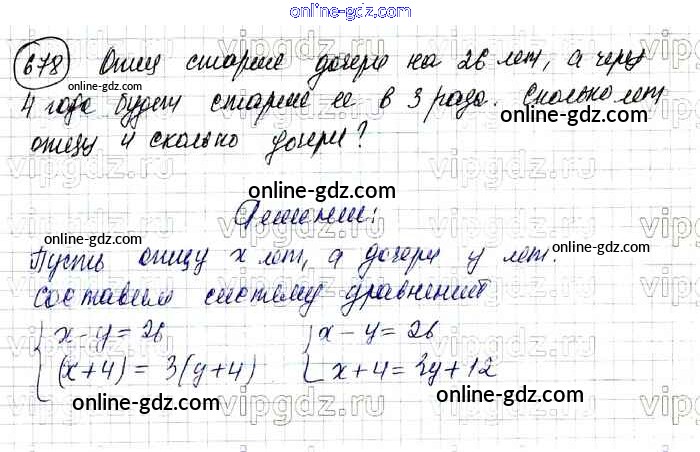 online-gdz.com
678 Отец старше дочери на 26 лет, а через
online-gdz.com
4 года будет старше ее в 3 раза. Сколько лет
online-gdz.com
отцу и сколько дочери?
vipgdz.ru
online-gdz.com
Решение:
online-gdz.com
Пусть отцу x лет, а дочери y лет.
online-gdz.com
Составим систему уравнений
online-gdz.com
{ x - y = 26 { x - y = 26
(x+4) = 3(y+4) x+4 = 3y+12
online-gdz.com online-gdz.com
vipgdz.ru